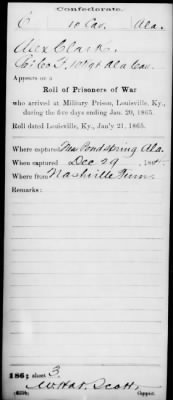 Confederate.
C 10 Cav. Ala.
Alex Clark
Co. F. 10 Regt Ala Cav.
Appears on a
Roll of Prisoners of War
who arrived at Military Prison, Louisville, Ky.,
during the five days ending Jan. 20, 1865.
Roll dated Louisville, Ky., Jan'y 21, 1865.
Where captured Pond Spring Ala.
When captured Dec 29, 186
Where from Nashville Tenn.
Remarks:
186 ; sheet 3
Scott
Copyist.